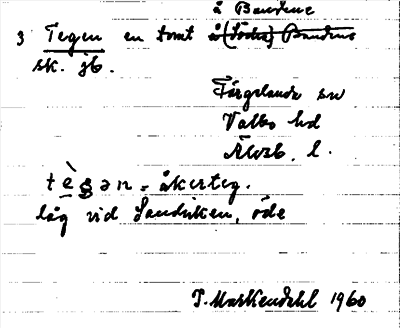 å Bandene
3 Tegen en tomt å (Södra) Bandene
sk. jb.
Färgelanda sn
Valbo hd
Älvsb. l.
tègən - åkerteg.
låg vid Sandviken, öde
T. Markendahl 1960